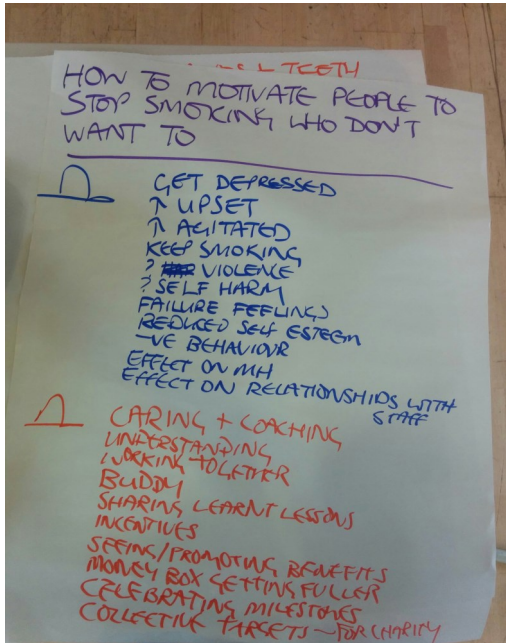 & TEETH
HOW TO MOTIVATE PEOPLE TO
STOP SMOKING WHO DON'T
WANT TO
GET DEPRESSED
↑ UPSET
↑ AGITATED
KEEP SMOKING
? VIOLENCE
? SELF HARM
FAILURE FEELINGS
REDUCED SELF ESTEEM
-VE BEHAVIOUR
EFFECT ON MH
EFFECT ON RELATIONSHIPS WITH
STAFF
CARING + COACHING
UNDERSTANDING
WORKING TOGETHER
BUDDY
SHARING LEARNT LESSONS
INCENTIVES
SEEING/PROMOTING BENEFITS
MONEY BOX GETTING FULLER
CELEBRATING MILESTONES
COLLECTIVE TARGETS - FOR CHARITY